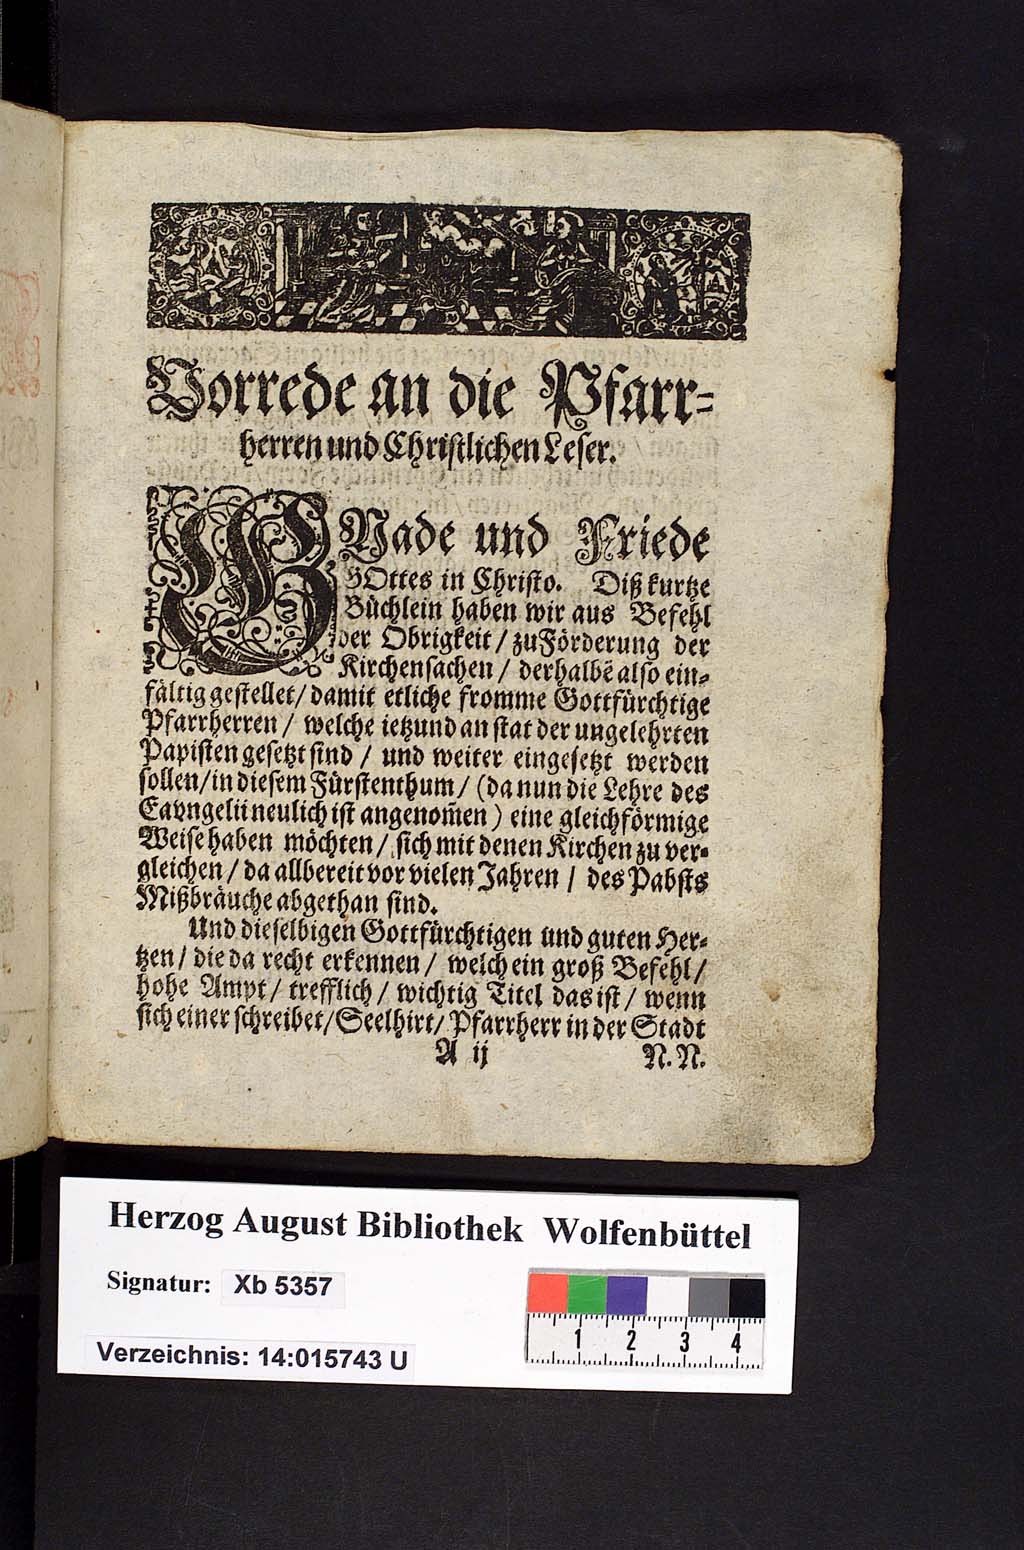 Vorrede an die Pfarr-
herren und Christlichen Leser.
GNade und Friede
GOttes in Christo. Diß kurtze
Büchlein haben wir aus Befehl
der Obrigkeit / zu Förderung der
Kirchensachen / derhalbẽ also ein-
fältig gestellet / damit etliche fromme Gottfürchtige
Pfarrherren / welche ietzund an stat der ungelehrten
Papisten gesetzt sind / und weiter eingesetzt werden
sollen / in diesem Fürstenthum / (da nun die Lehre des
Eavngelii neulich ist angenom̃en) eine gleichförmige
Weise haben möchten / sich mit denen Kirchen zu ver-
gleichen / da allbereit vor vielen Jahren / des Pabsts
Mißbräuche abgethan sind.
Und dieselbigen Gottfürchtigen und guten Her-
tzen / die da recht erkennen / welch ein groß Befehl /
hohe Ampt / trefflich / wichtig Titel das ist / wenn
sich einer schreibet / Seelhirt / Pfarrherr in der Stadt
A ij N. N.
Herzog August Bibliothek Wolfenbüttel
Signatur: Xb 5357
Verzeichnis: 14:015743 U
1 2 3 4